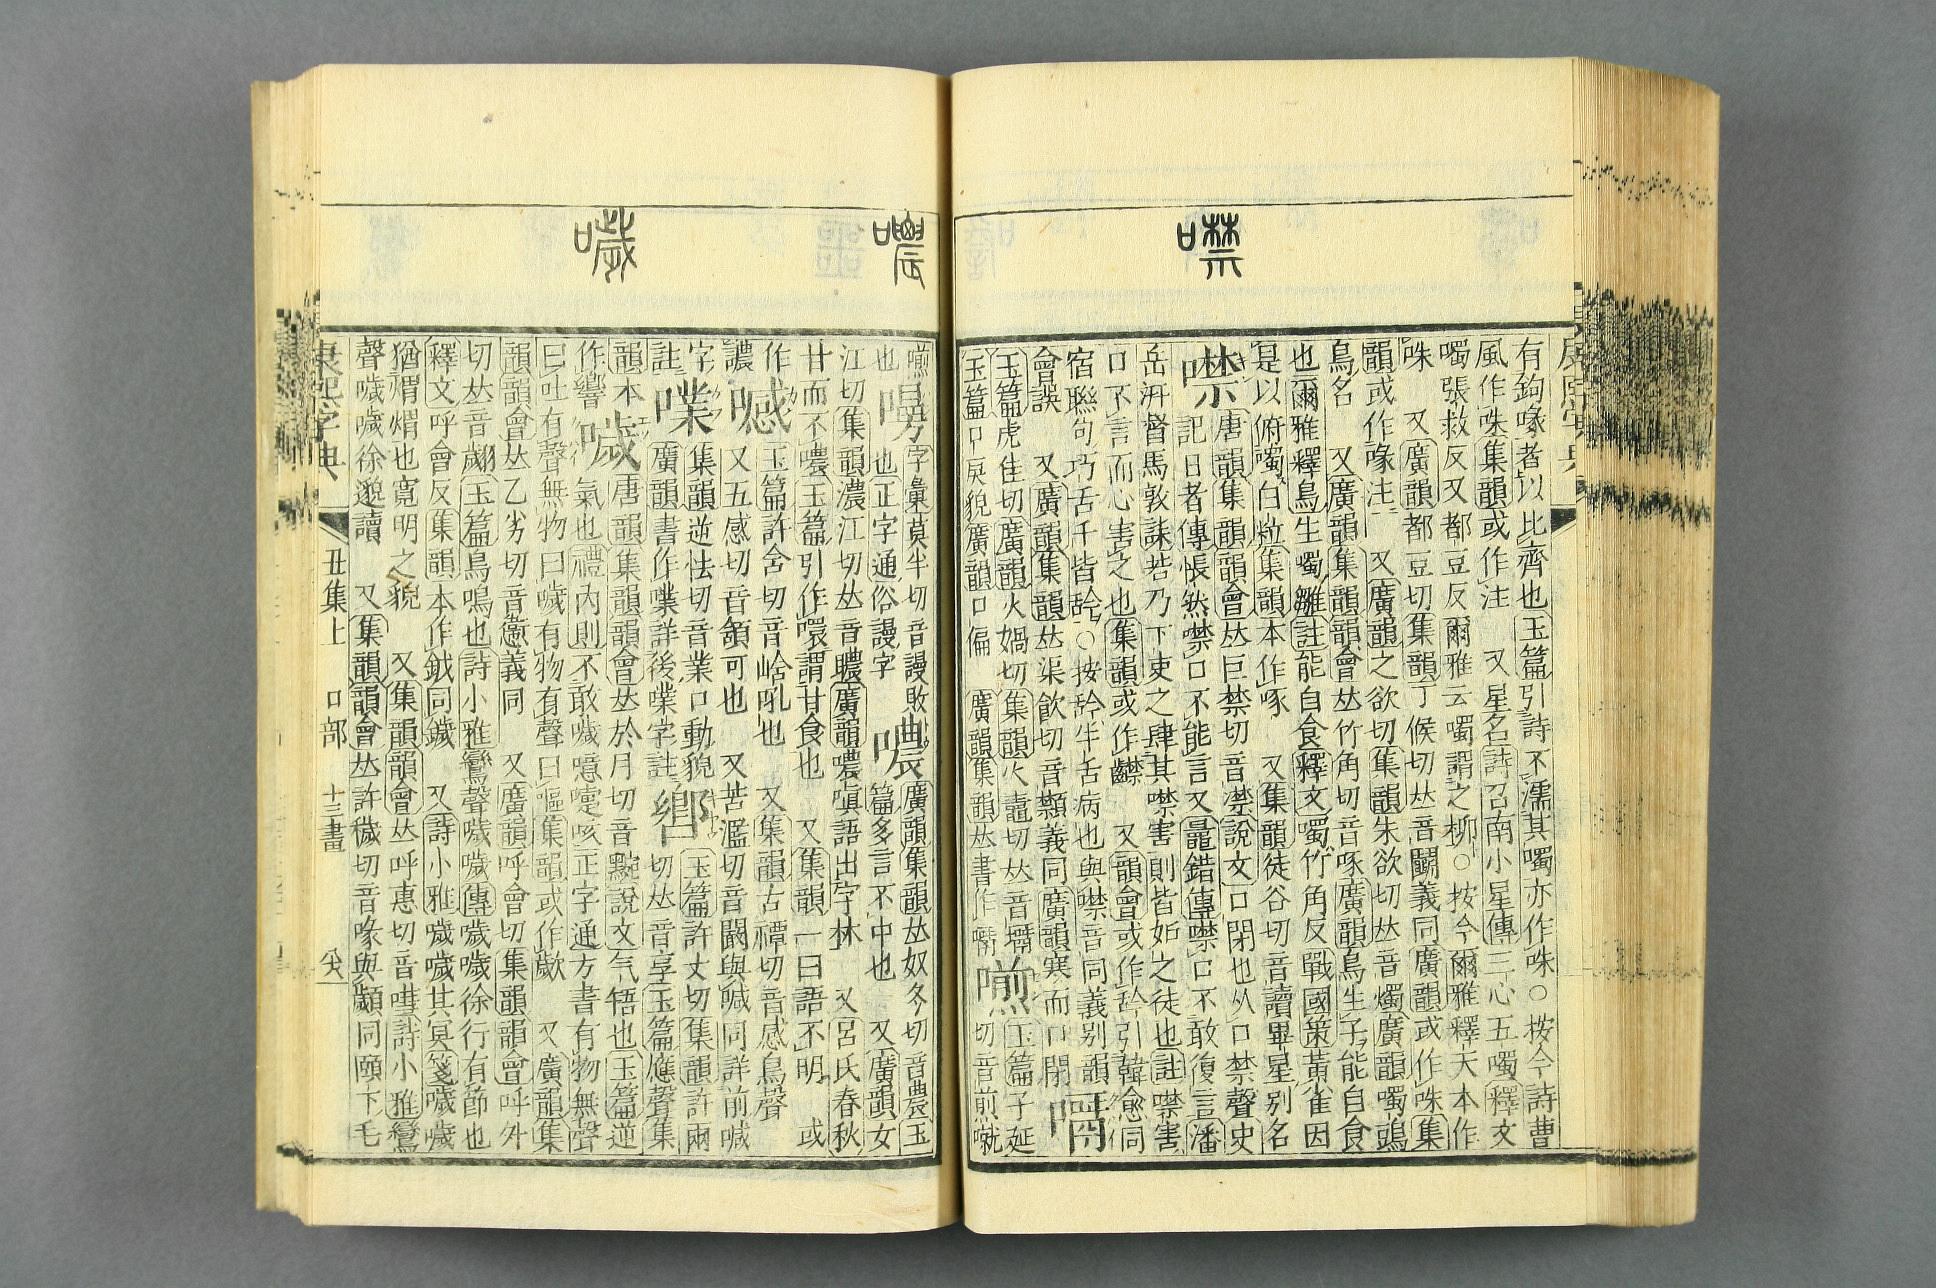 噤
有鉤喙者以比齊也玉篇引詩不濡其噣亦作咮○按今詩曹
風作咮集韻或作注　又星名詩召南小星傳三心五噣釋文
噣張救反又都豆反爾雅云噣謂之柳○按今爾雅釋天本作
咮　又廣韻都豆切集韻丁候切𠀤音鬭義同廣韻或作咮集
韻或作喙注　又廣韻之欲切集韻朱欲切𠀤音燭廣韻噣鴟
鳥名　又廣韻集韻韻會𠀤竹角切音啄廣韻鳥生子能自食
也爾雅釋鳥生噣雛註能自食釋文噣竹角反戰國策黃雀因
是以俯噣白粒集韻本作啄　又集韻徒谷切音讀畢星別名
噤唐韻集韻韻會𠀤巨禁切音凚說文口閉也从口禁聲史
記日者傳悵然噤口不能言又鼂錯傳噤口不敢復言潘
岳汧督馬敦誄若乃下吏之肆其噤害則皆妬之徒也註噤害
口不言而心害之也集韻或作齽　又韻會或作訡引韓愈同
宿聯句巧舌千皆訡○按訡牛舌病也與噤音同義别韻
會誤　又廣韻集韻𠀤渠飲切音凚義同廣韻寒而口閉　
玉篇虎隹切廣韻火媧切集韻火鼃切𠀤音　玉篇子延
玉篇口戾貌廣韻口偏　廣韻集韻𠀤書作　切音煎噍
嚈　噥　噦
嚈也　字彙莫半切音謾敗也正字通俗謾字
噥廣韻集韻𠀤奴冬切音農玉篇多言不中也　又廣韻女
江切集韻濃江切𠀤音聸廣韻噥嗔語出字林　又呂氏春秋
甘而不噥玉篇引作噮謂甘食也　又集韻一曰語不明　或
作　噉玉篇許舍切音㟏吼也　又集韻古禫切音感鳥聲
譨　又五感切音顉可也　又苦濫切音闞與喊同詳前喊
字　集韻逆怯切音業口動貌　玉篇許丈切集韻許兩
註　噗廣韻書作㗼詳後㗼字註　嚮切𠀤音享玉篇應聲集
韻本　噦唐韻集韻韻會𠀤於月切音黦說文气牾也玉篇逆
作響　氣也禮內則不敢噦噫嚏咳正字通方書有物無聲
曰吐有聲無物曰噦有物有聲曰嘔集韻或作㰲　又廣韻集
韻韻會𠀤乙劣切音㦣義同　又廣韻呼會切集韻韻會呼外
切𠀤音翽玉篇鳥鳴也詩小雅鸞聲噦噦傳噦噦徐行有節也
釋文呼會反集韻本作鉞同鐬　又詩小雅噦噦其冥箋噦噦
猶煟煟也寬明之貌　又集韻韻會𠀤呼惠切音嘒詩小雅鸞
聲噦噦徐邈讀　又集韻韻會𠀤許穢切音喙與顪同頤下毛
康熙字典　丑集上　口部　十三畫